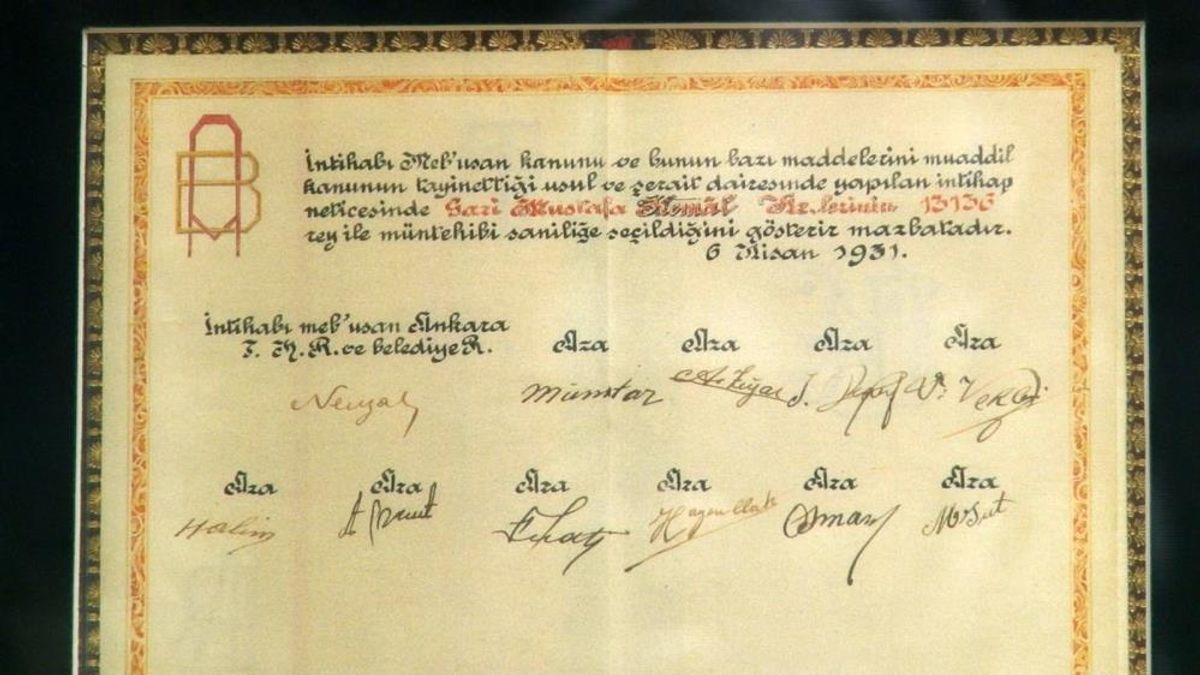 İntihabı Meb'usan kanunu ve bunun bazı maddelerini muaddil
kanunun tayinettiği usul ve şerait dairesinde yapılan intihap
neticesinde Gazi Mustafa Kemâl Hz.lerinin 13136
rey ile müntehibi saniliğe seçildiğini gösterir mazbatadır.
6 Nisan 1931.
İntihabı meb'usan Ankara
T. H. R. ve belediye R.
Aza Aza Aza Aza
Nevzat Mümtaz
Aza Aza Aza Aza Aza Aza
Halim Osman